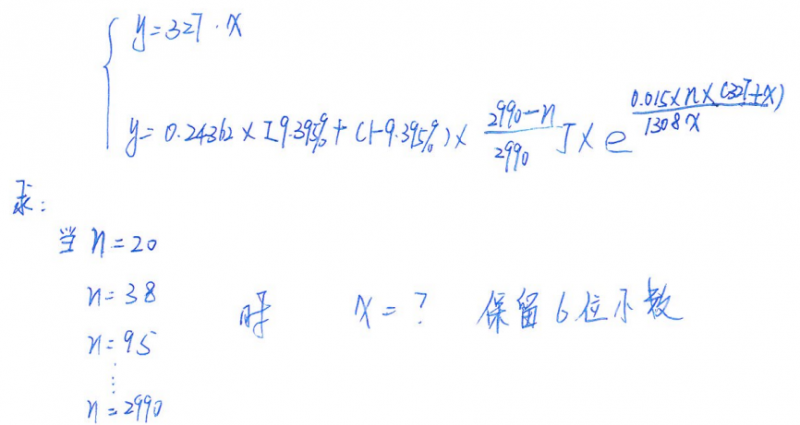 y=327·x
y=0.24362×[9.395%+(1-9.395%)×\frac{2990-n}{2990}]×e^{\frac{0.015×n×(327+x)}{1308x}}
求:
当 n=20
n=38
n=95
⋮
n=2990
时 x=? 保留6位小数